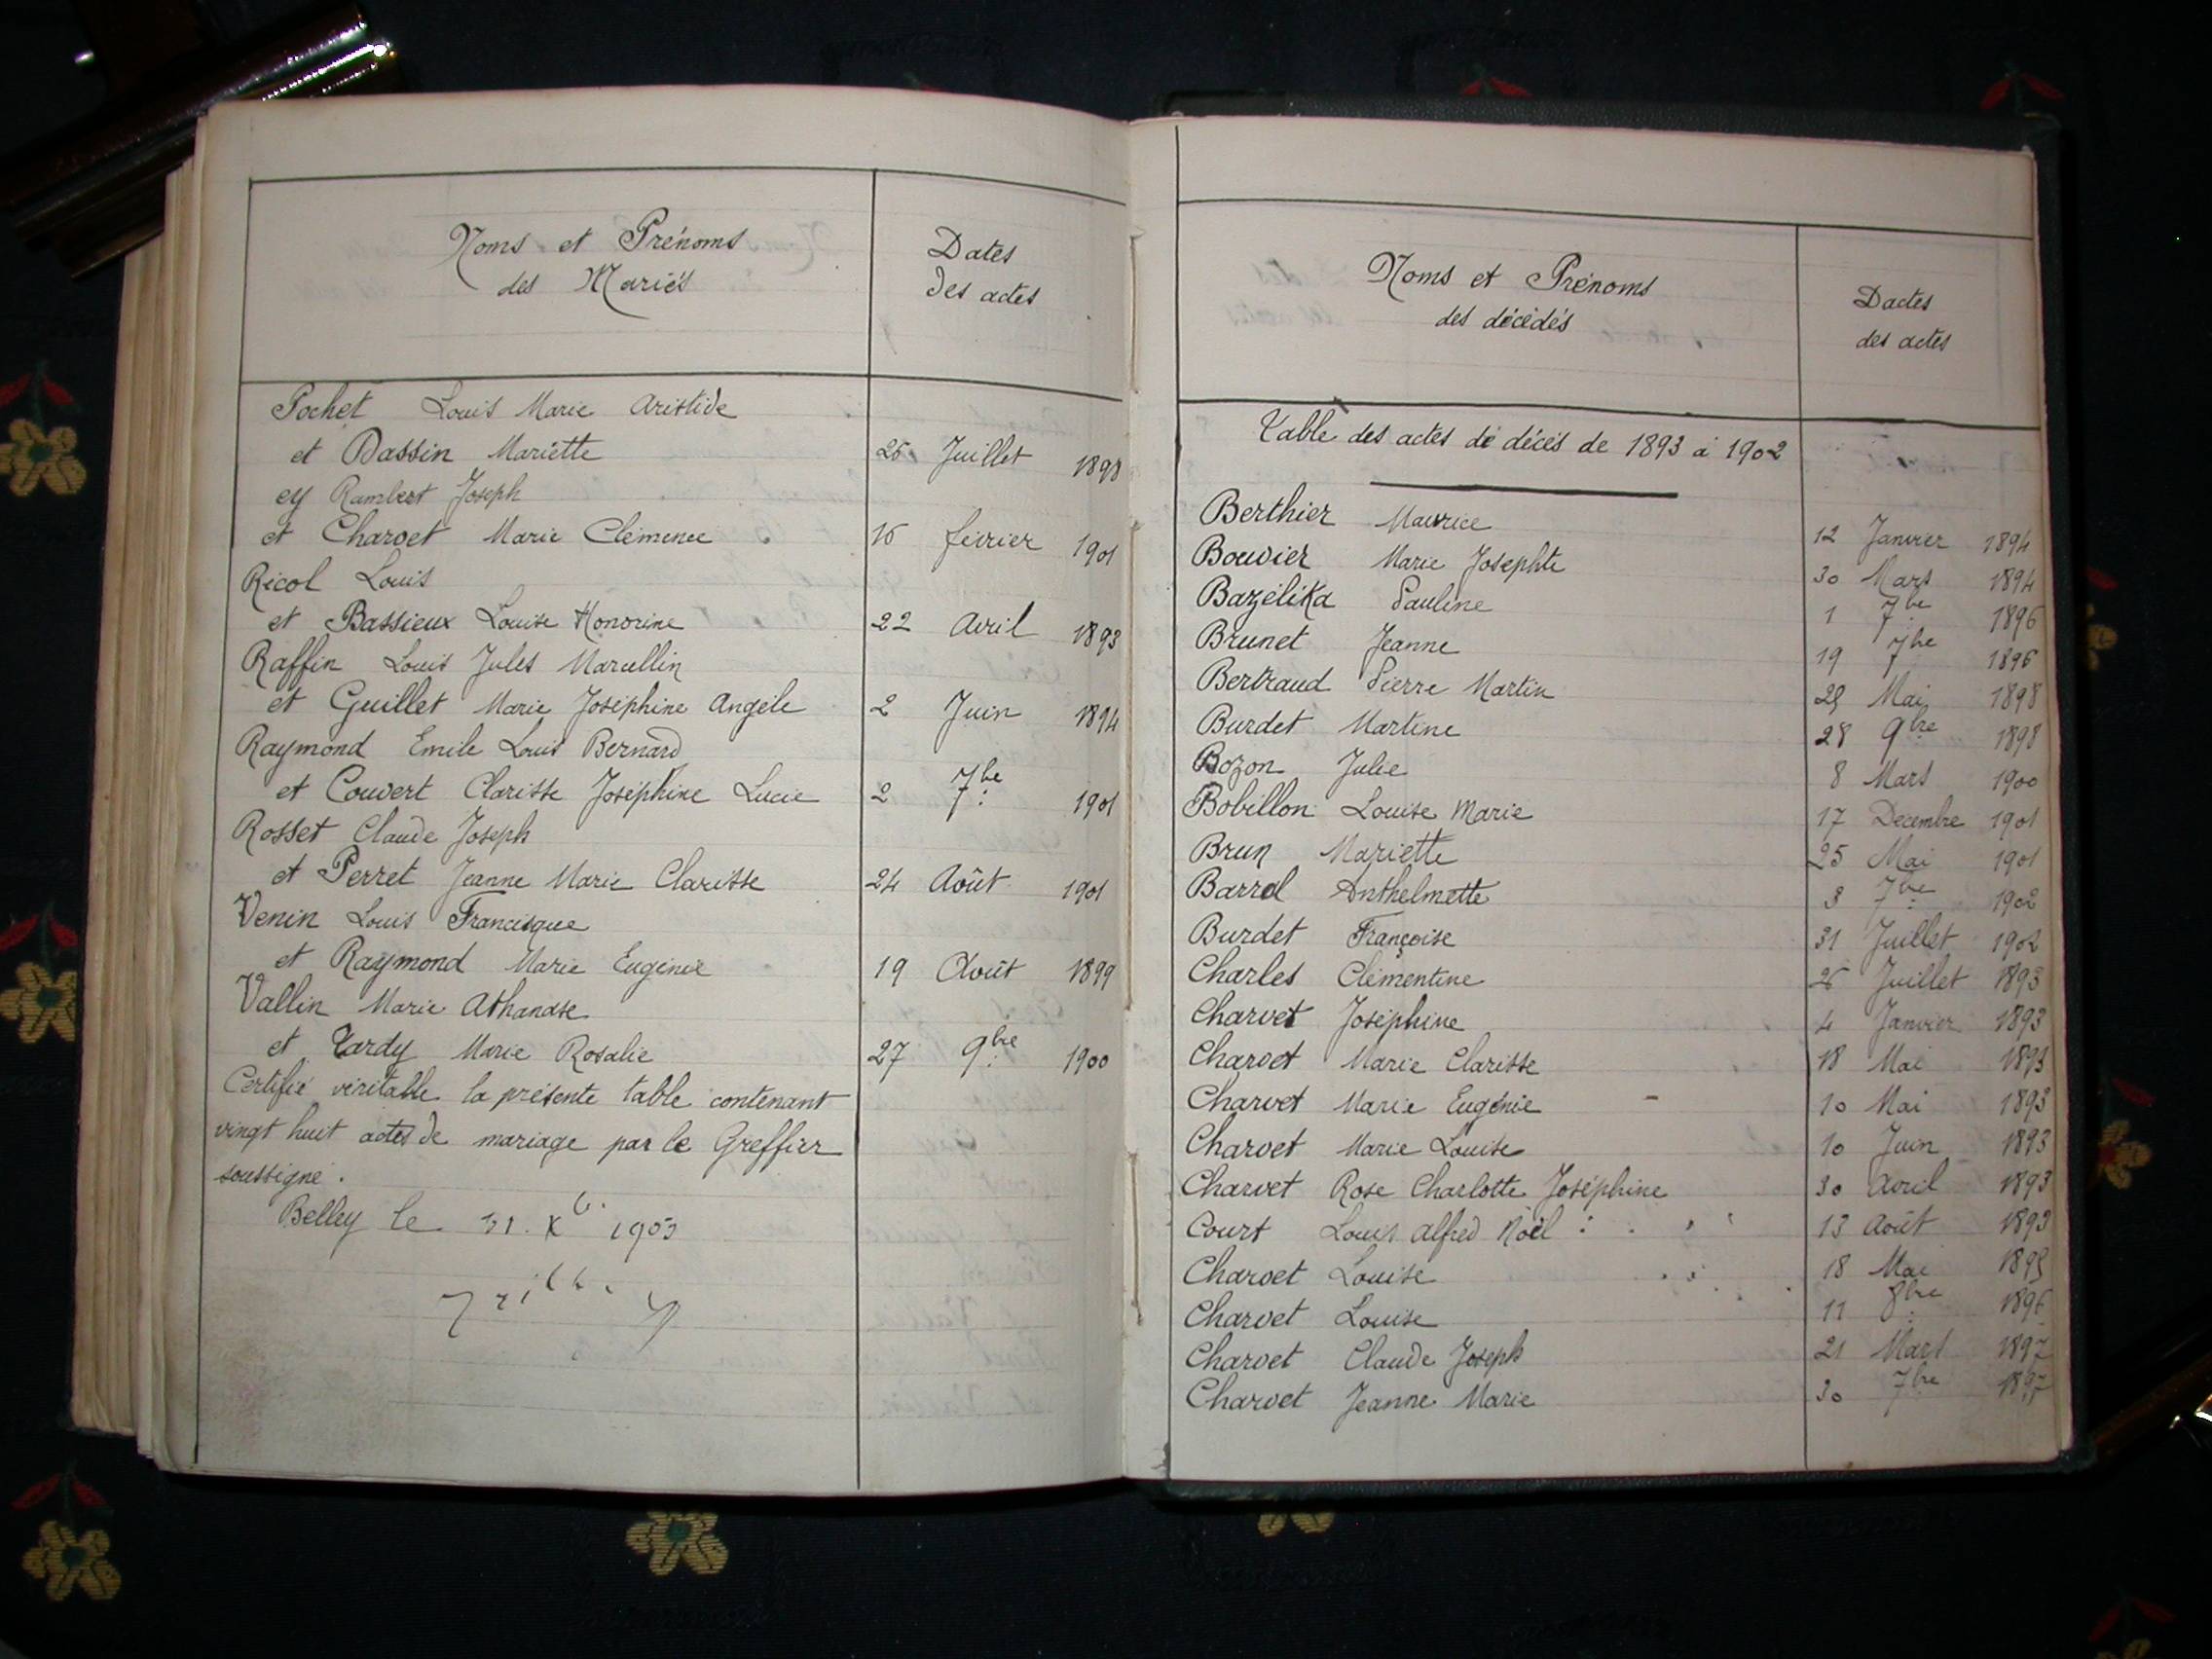 Noms et Prénoms
des Mariés
Dates
des actes
Pochet Louis Marie Aristide
et Dassin Mariette 26 Juillet 1898
ey Rambert Joseph
et Charvet Marie Clémence 16 février 1901
Ricol Louis
et Bassieux Louise Honorine 22 Avril 1893
Raffin Louis Jules Marcellin
et Guillet Marie Joséphine Angèle 2 Juin 1894
Raymond Emile Louis Bernard
et Couvert Clarisse Joséphine Lucie 2 7be 1901
Rosset Claude Joseph
et Perret Jeanne Marie Clarisse 24 Août 1901
Venin Louis Francisque
et Raymond Marie Eugénie 19 Août 1899
Vallin Marie Athanase
et Tardy Marie Rosalie 27 9bre 1900
Certifié véritable la présente table contenant
vingt huit actes de mariage par le Greffier
soussigné.
Belley le 31. Xb. 1903
Noms et Prénoms
des décédés
Dactes
des actes
Table des actes de décés de 1893 à 1902
Berthier Maurice 12 Janvier 1894
Bouvier Marie Josephte 30 Mars 1894
Bazélika Pauline 1 7be 1896
Brunet Jeanne 19 7be 1896
Bertraud Pierre Martin Mai 1898
Burdet Martine 28 9bre 1898
Bozon Julie 8 Mars 1900
Bobillon Louise Marie 17 Décembre 1901
Brun Mariette 25 Mai 1901
Barral Anthelmette 3 7bre 1902
Burdet Françoise 31 Juillet 1902
Charles Clémentine 26 Juillet 1893
Charvet Joséphine 4 Janvier 1893
Charvet Marie Clarisse 18 Mai 1893
Charvet Marie Eugénie 10 Mai 1893
Charvet Marie Louise 10 Juin 1893
Charvet Rose Charlotte Joséphine 30 Avril 1893
Court Louis Alfred Noël 13 Août 1893
Charvet Louise 18 Mai 1895
Charvet Louise 11 8bre 1896
Charvet Claude Joseph 21 Mars 1897
Charvet Jeanne Marie 30 7bre 1897